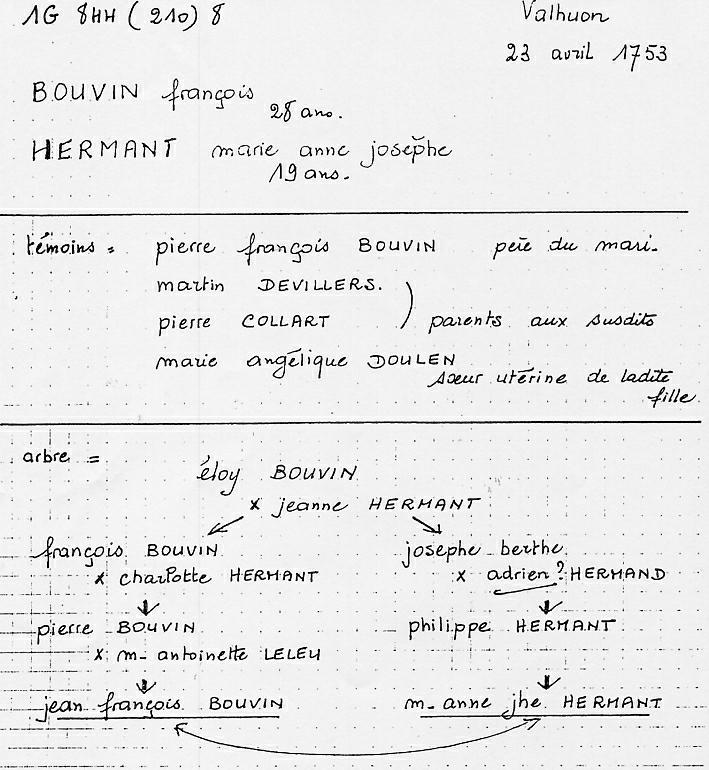 1G 8HH (210) 8 Valhuon
23 avril 1753
BOUVIN françois
28 ans.
HERMANT marie anne josephe
19 ans.
témoins = pierre françois BOUVIN père du mari.
martin DEVILLERS.
pierre COLLART ) parents aux susdits
marie angélique DOULEN
sœur utérine de ladite
fille
arbre =
éloy BOUVIN
x jeanne HERMANT
françois BOUVIN josephe berthe
x charlotte HERMANT x adrien ? HERMAND
pierre BOUVIN philippe HERMANT
x m- antoinette LELEU
jean françois BOUVIN m- anne jhe HERMANT